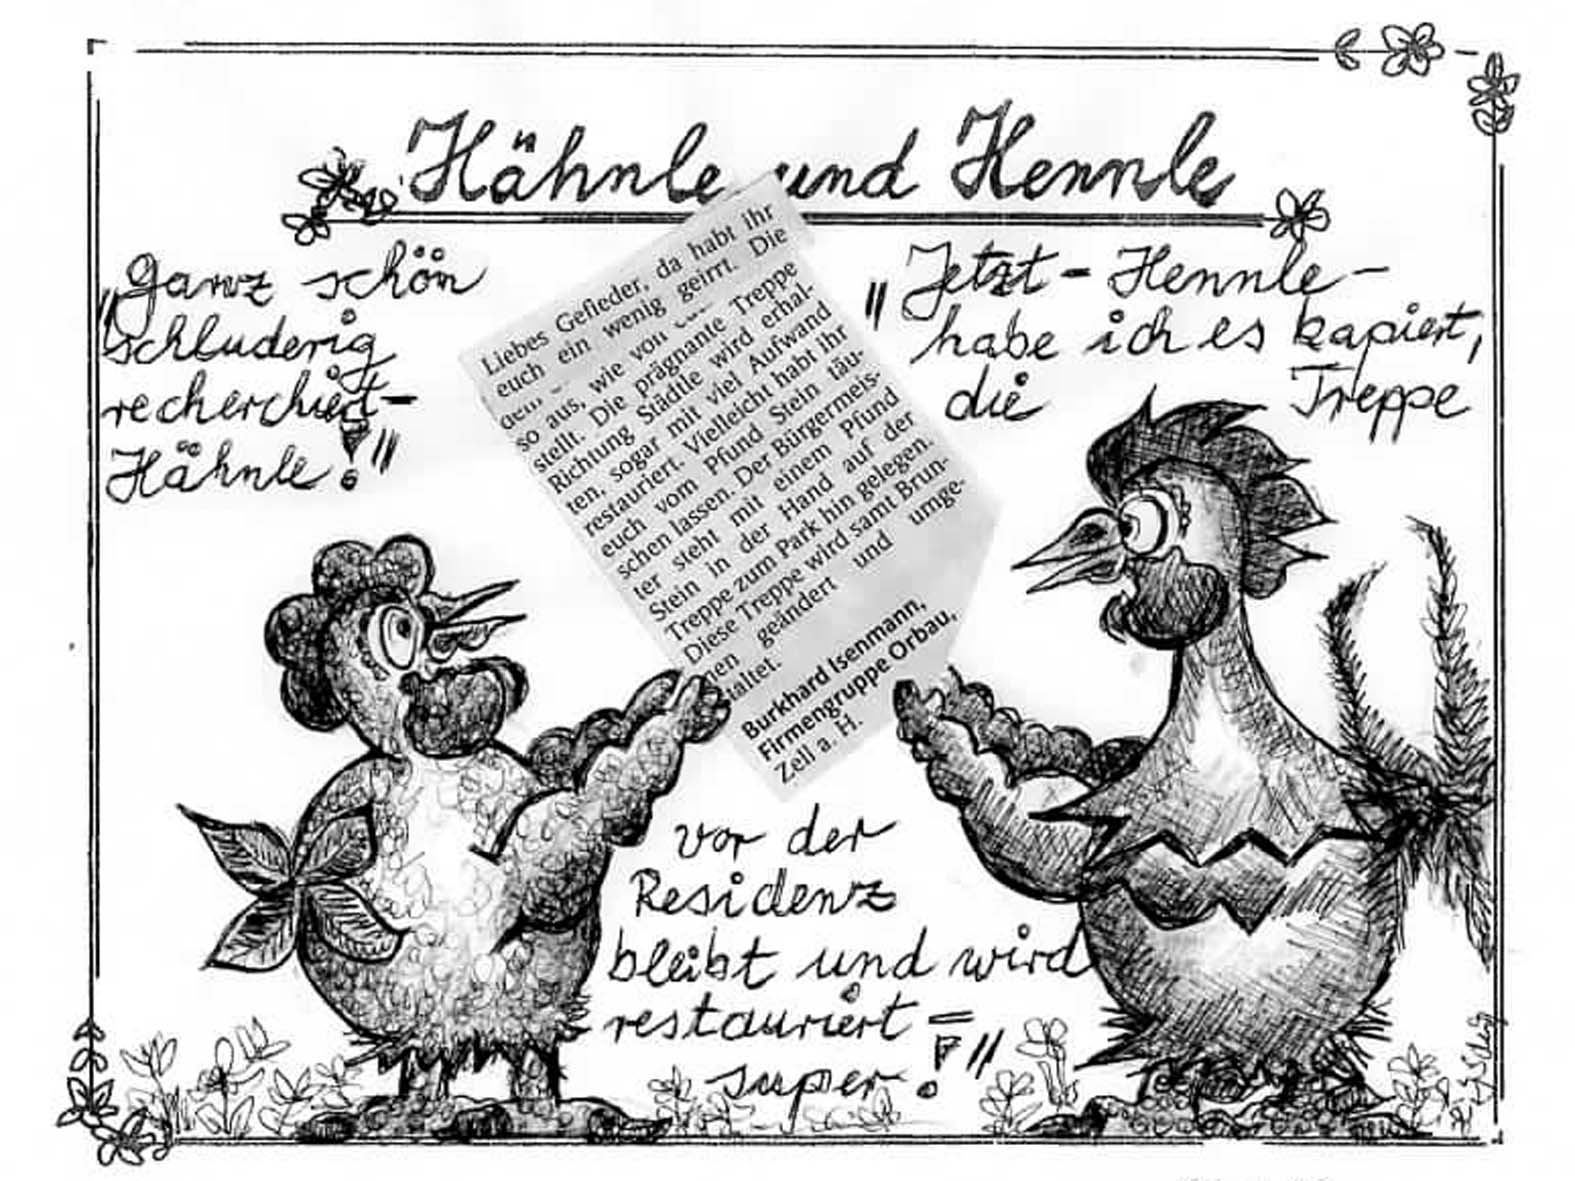 Hähnle und Hennle
"Ganz schön
schluderig
recherchiert-
Hähnle!"
Liebes Gefieder, da habt ihr
euch ein wenig geirrt. Die
so aus, wie von
stellt. Die prägnante Treppe
Richtung Städtle wird erhal-
ten, sogar mit viel Aufwand
restauriert. Vielleicht habt ihr
euch vom Pfund Stein täu-
schen lassen. Der Bürgermeis-
ter steht mit einem Pfund
Stein in der Hand auf der
Treppe zum Park hin gelegen.
Diese Treppe wird samt Brun-
nen geändert und umge-
staltet.
Burkhard Isenmann,
Firmengruppe Orbau,
Zell a. H.
"Jetzt - Hennle -
habe ich es kapiert,
die Treppe
vor der
Residenz
bleibt und wird
restauriert =
super!"